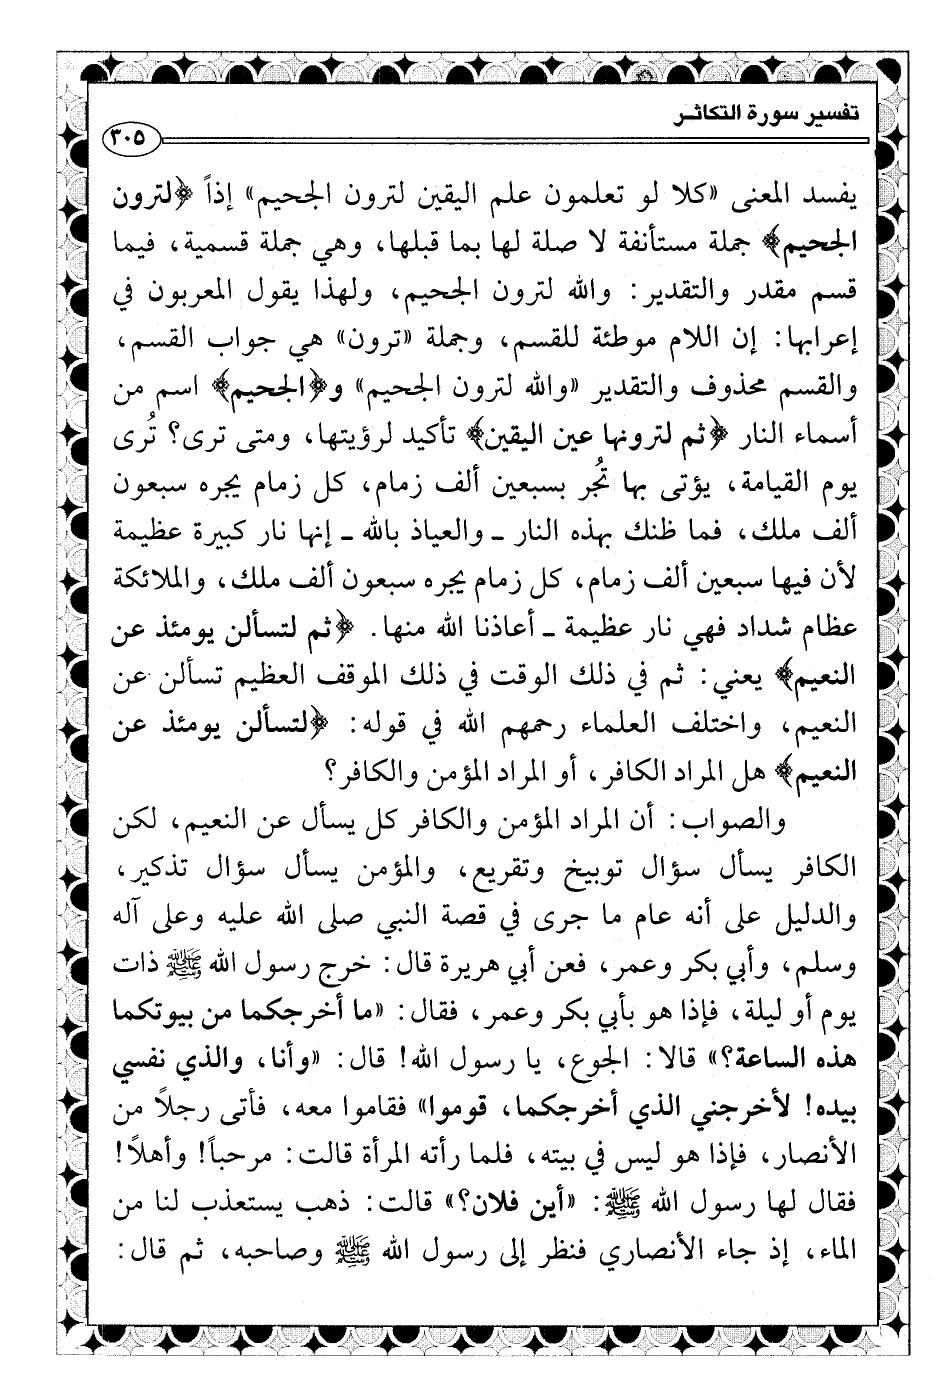 تفسير سورة التكاثر
٣٠٥
يفسد المعنى «كلا لو تعلمون علم اليقين لترون الجحيم» إذاً ﴿لترون
الجحيم﴾ جملة مستأنفة لا صلة لها بما قبلها، وهي جملة قسمية، فيما
قسم مقدر والتقدير: والله لترون الجحيم، ولهذا يقول المعربون في
إعرابها: إن اللام موطئة للقسم، وجملة «ترون» هي جواب القسم،
والقسم محذوف والتقدير «والله لترون الجحيم» و﴿الجحيم﴾ اسم من
أسماء النار ﴿ثم لترونها عين اليقين﴾ تأكيد لرؤيتها، ومتى ترى؟ تُرى
يوم القيامة، يؤتى بها تُجر بسبعين ألف زمام، كل زمام يجره سبعون
ألف ملك، فما ظنك بهذه النار ـ والعياذ بالله ـ إنها نار كبيرة عظيمة
لأن فيها سبعين ألف زمام، كل زمام يجره سبعون ألف ملك، والملائكة
عظام شداد فهي نار عظيمة ـ أعاذنا الله منها. ﴿ثم لتسألن يومئذ عن
النعيم﴾ يعني: ثم في ذلك الوقت في ذلك الموقف العظيم تسألن عن
النعيم، واختلف العلماء رحمهم الله في قوله: ﴿لتسألن يومئذ عن
النعيم﴾ هل المراد الكافر، أو المراد المؤمن والكافر؟
والصواب: أن المراد المؤمن والكافر كل يسأل عن النعيم، لكن
الكافر يسأل سؤال توبيخ وتقريع، والمؤمن يسأل سؤال تذكير،
والدليل على أنه عام ما جرى في قصة النبي صلى الله عليه وعلى آله
وسلم، وأبي بكر وعمر، فعن أبي هريرة قال: خرج رسول الله ﷺ ذات
يوم أو ليلة، فإذا هو بأبي بكر وعمر، فقال: «ما أخرجكما من بيوتكما
هذه الساعة؟» قالا: الجوع، يا رسول الله! قال: «وأنا، والذي نفسي
بيده! لأخرجني الذي أخرجكما، قوموا» فقاموا معه، فأتى رجلاً من
الأنصار، فإذا هو ليس في بيته، فلما رأته المرأة قالت: مرحباً! وأهلاً!
فقال لها رسول الله ﷺ: «أين فلان؟» قالت: ذهب يستعذب لنا من
الماء، إذ جاء الأنصاري فنظر إلى رسول الله ﷺ وصاحبه، ثم قال: